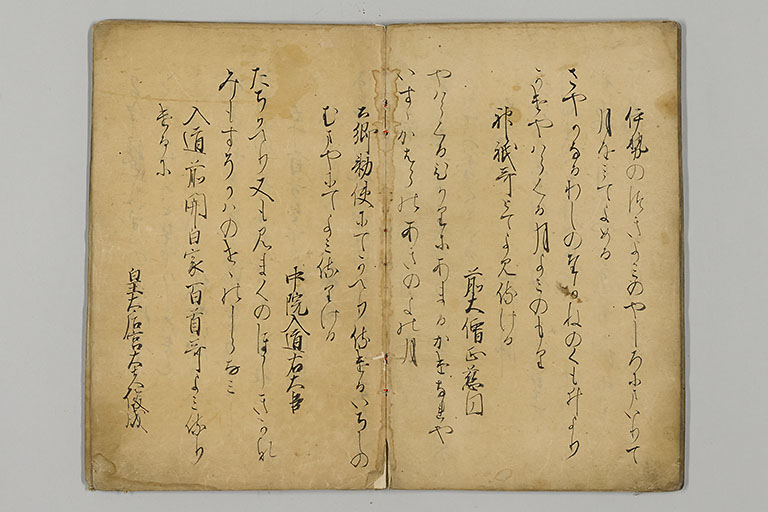 伊勢のつきよみのやしろにまいりて
月をみてよめる
さやかなるわしのたかねのくもゐより
かけやはらくる月よみのもり
神祇哥とてよみ侍ける
前大僧正慈円
やはらくるひかりにあまるかけなれや
いすゝかはらのあきのよの月
公卿勅使にてかへり侍けるいちしの
むまやにてよみ侍りける
中院入道右大臣
たちかへり又も見まくのほしきかな
みもすそかはのせゝのしらなみ
入道前関白家百首哥よみ侍り
けるに
皇太后宮大夫俊成